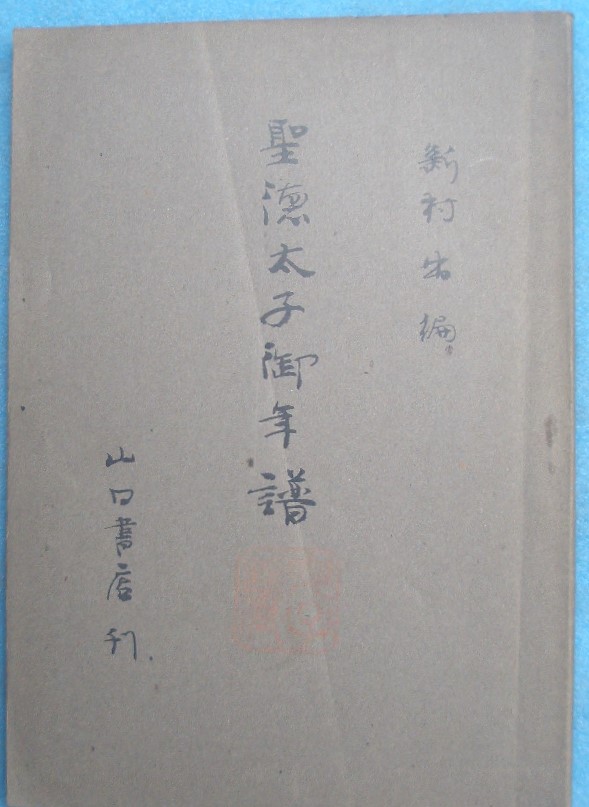 新村出編
聖徳太子御年譜
山口書店刊